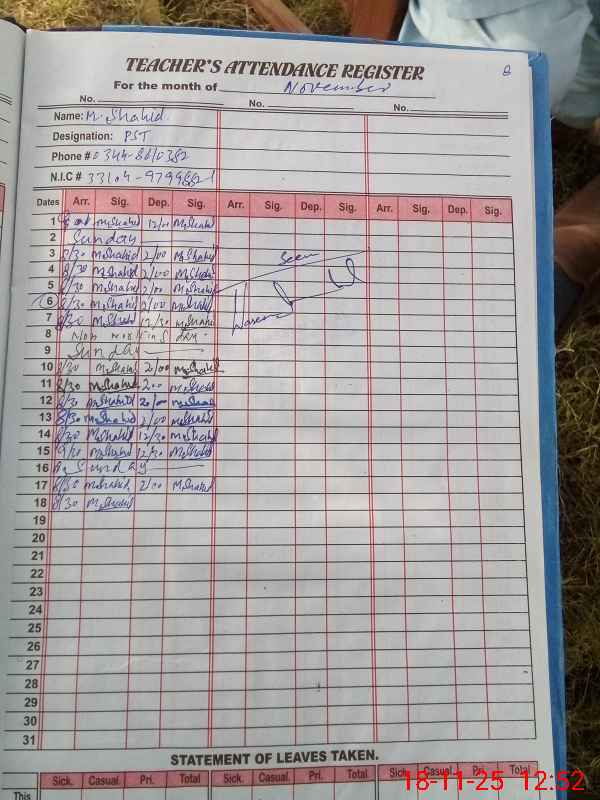 TEACHER'S ATTENDANCE REGISTER
For the month of November
No. No. No.
Name: M. Shahid
Designation: PST
Phone # 0344-8610382
N.I.C # 33104-9799882-1
Dates Arr. Sig. Dep. Sig. Arr. Sig. Dep. Sig. Arr. Sig. Dep. Sig.
1 M.Shahid 12/00 M.Shahid
2 Sunday
Seen
3 8/30 M.Shahid 2/00 M.Shahid
4 8/30 M.Shahid 2/00 M.Shahid
5 8/30 M.Shahid 2/00 M.Shahid
6 8/30 M.Shahid 2/00 M.Shahid
7 8/30 M.Shahid 12/30 M.Shahid
8 Non working day
9 Sunday
10 8/30 M.Shahid 2/00 M.Shahid
11 8/30 M.Shahid 2/00 M.Shahid
12 8/30 M.Shahid 2/00 M.Shahid
13 8/30 M.Shahid 2/00 M.Shahid
14 8/30 M.Shahid 12/30 M.Shahid
15 9/30 M.Shahid 12/30 M.Shahid
16 Sunday
17 8/30 M.Shahid 2/00 M.Shahid
18 8/30 M.Shahid
19
20
21
22
23
24
25
26
27
28
29
30
31
STATEMENT OF LEAVES TAKEN.
Sick. Casual. Pri. Total Sick. Casual. Pri. Total Sick. Casual. Pri. Total
This
18-11-25 12:52